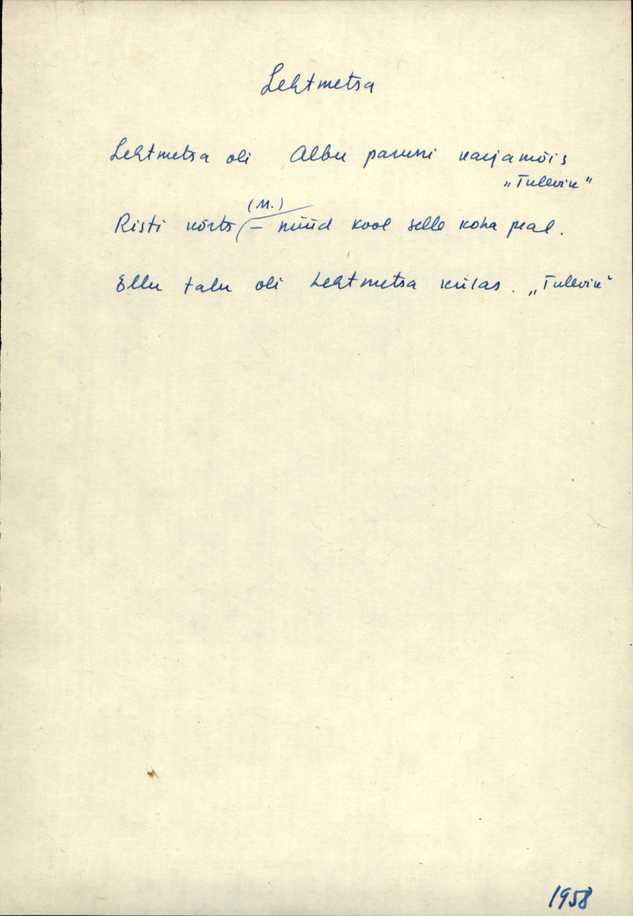 Lehtmetsa
Lehtmetsa oli Albu paruni karjamõis
„Tulevik"
(M.)
Risti kõrts – nüüd kool selle koha peal.
Ellu talu oli Lehtmetsa külas. „Tulevik"
1958